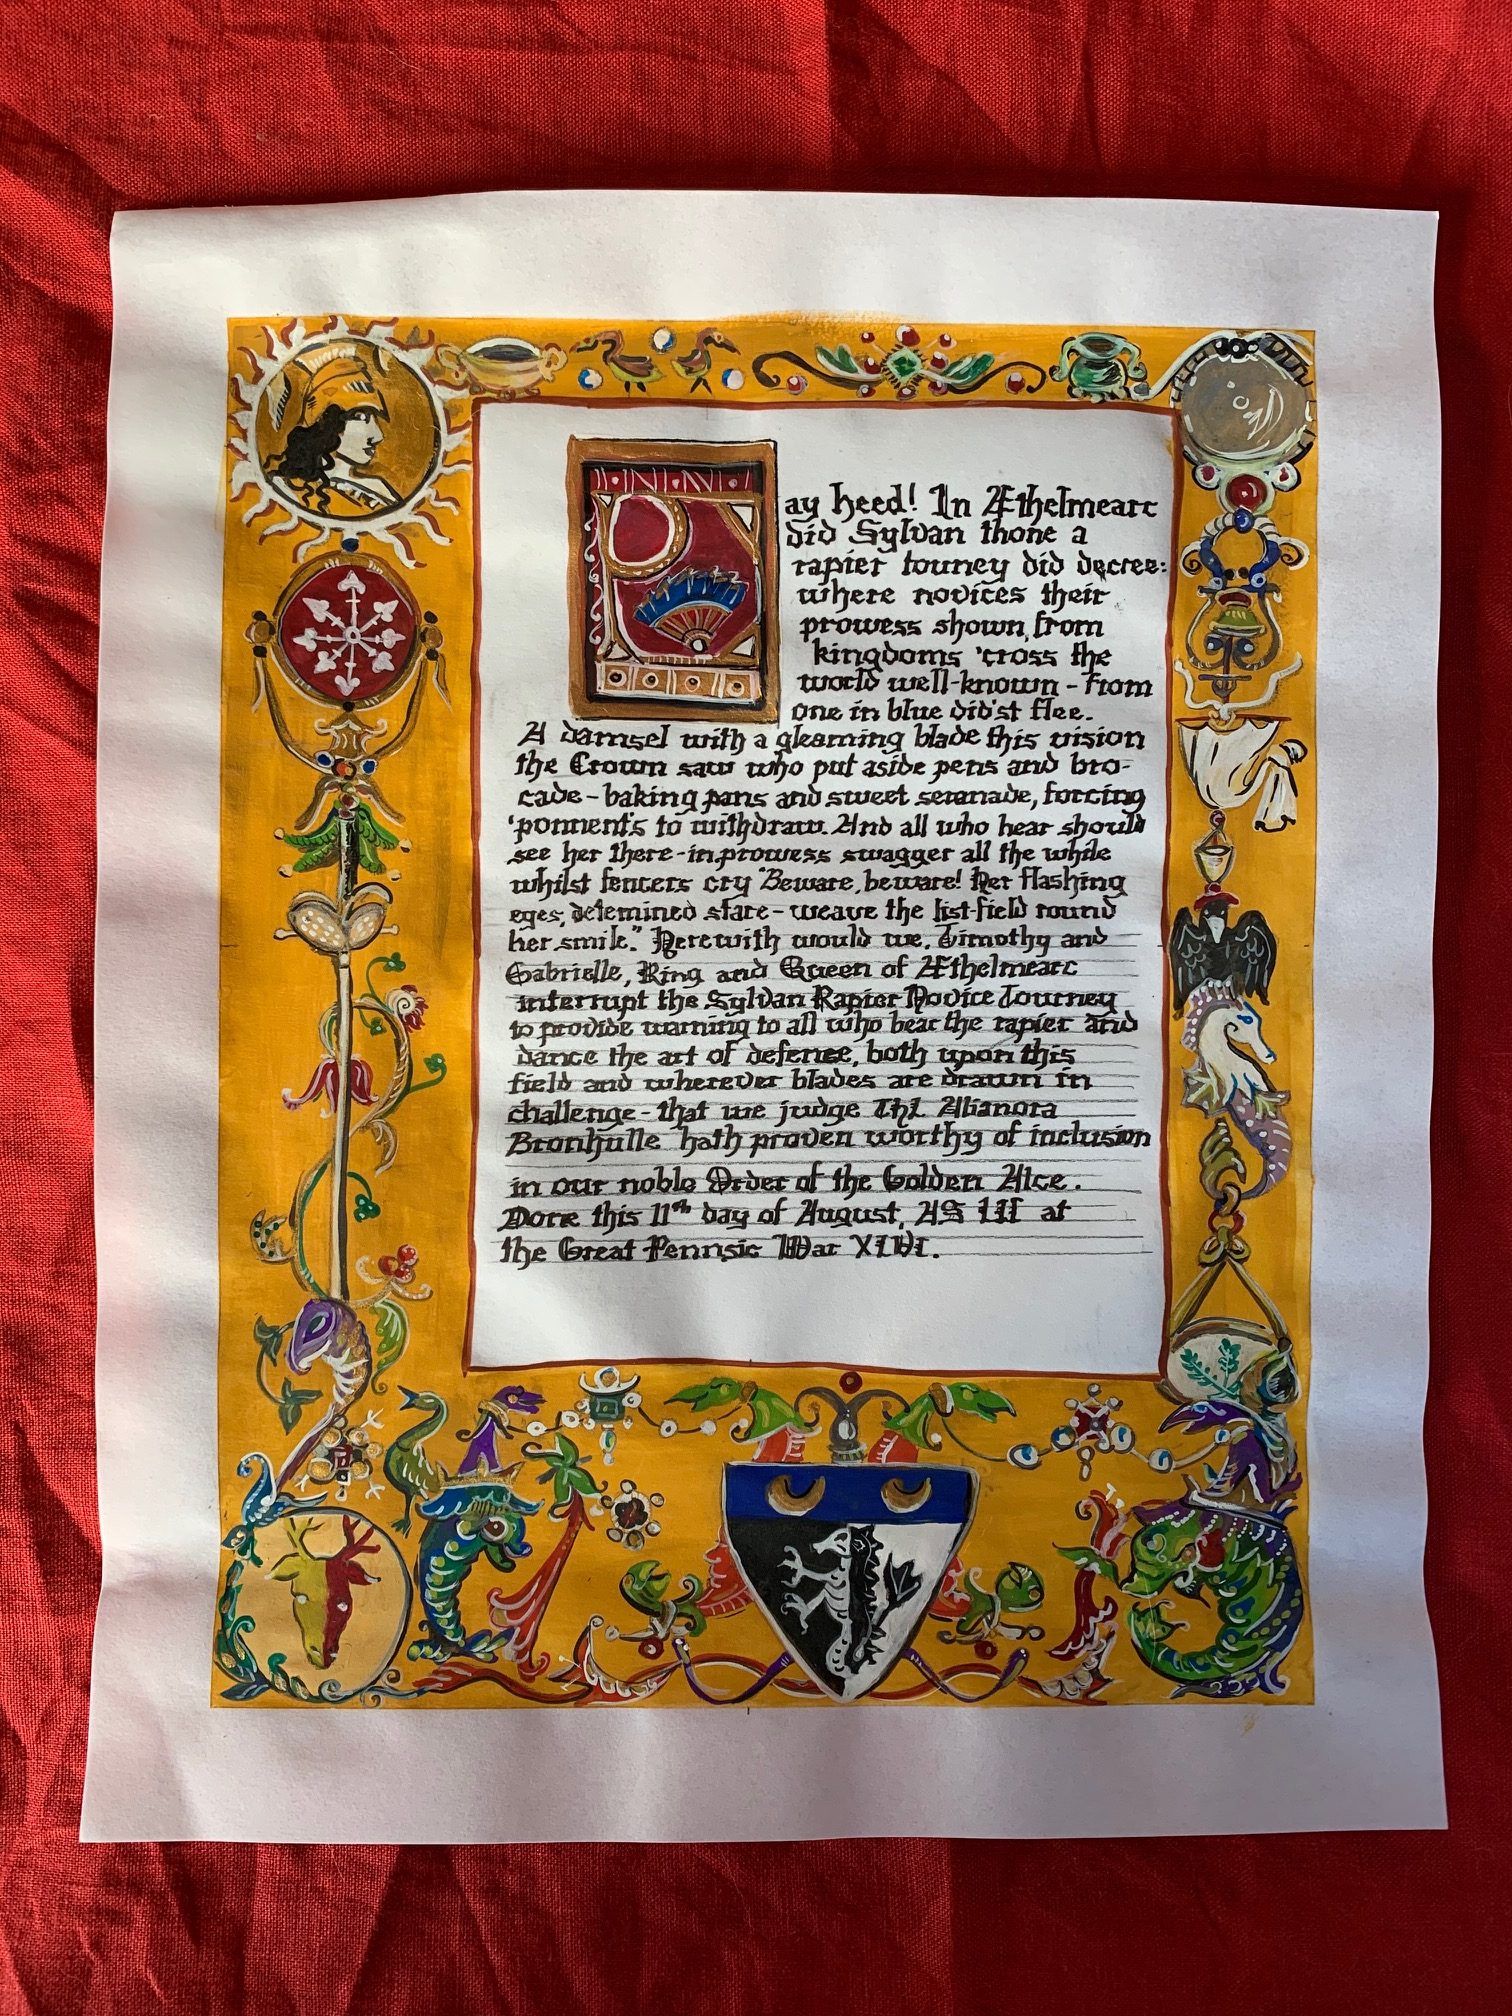 Pay heed! In Æthelmearc
did Sylvan thone a
rapier touney did decree:
where novices their
prowess shown, from
kingdoms 'cross the
world well-known - from
one in blue did'st flee.
A damsel with a gleaming blade this vision
the Crown saw who put aside pens and bro-
cade - baking pans and sweet serenade, forcing
'ponnent's to withdraw. And all who hear should
see her there - in prowess swagger all the while
whilst fencers cry "Beware, beware! Her flashing
eyes, detemined stare - weave the list-field round
her smile." Herewith would we, Timothy and
Gabrielle, King and Queen of Æthelmearc
interrupt the Sylvan Rapier Novice Tourney
to provide warning to all who bear the rapier and
dance the art of defense, both upon this
field and wherever blades are drawn in
challenge - that we judge THL Alianora
Bronhulle hath proven worthy of inclusion
in our noble Order of the Golden Alce.
Done this 11th day of August, AS LII at
the Great Pennsic War XLVI.